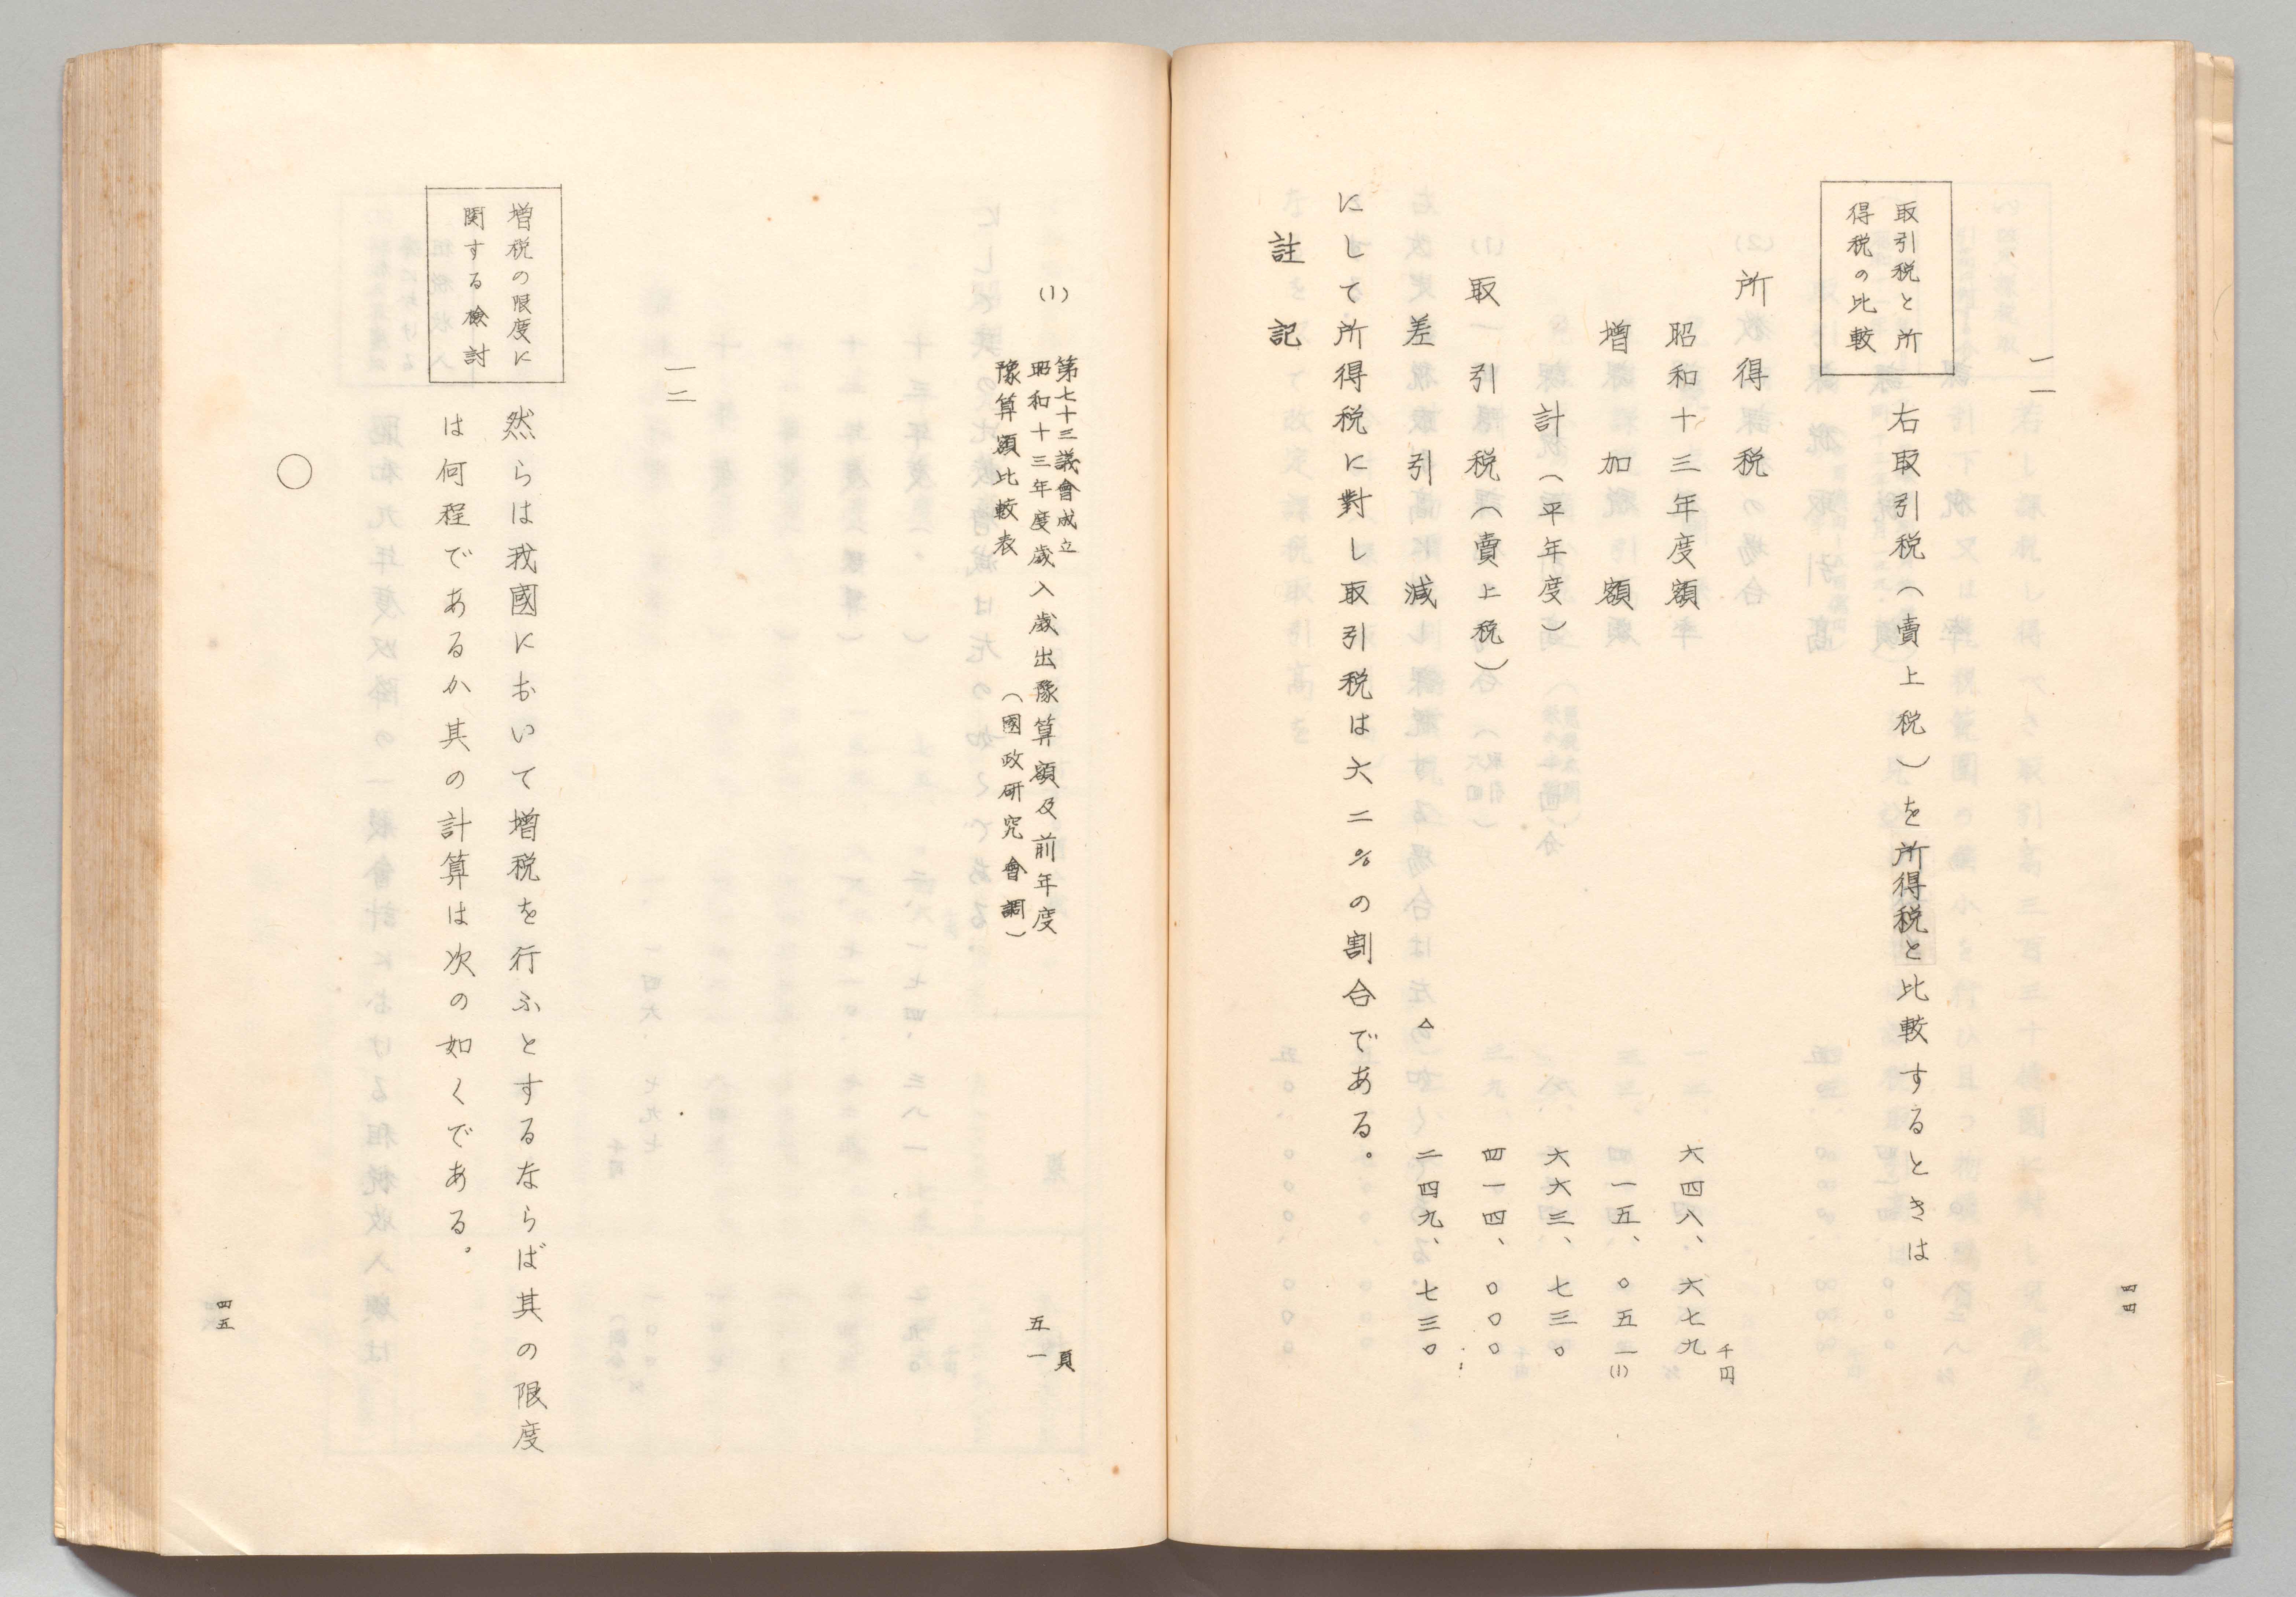 一一
取引税と所
得税の比較
右取引税(賣上税)を所得税と比較するときは
千円
所得税
昭和十三年度額 六四八、六七九
増加額 四一五、〇五一(1)
計(平年度) 六六三、七三〇
取引税(賣上税) 四一四、〇〇〇
差引減 △二四九、七三〇
にして所得税に對し取引税は六二%の割合である。
註記
四四
(1) 第七十三議會成立
昭和十三年度歳入歳出豫算額及前年度
豫算額比較表 (國政研究會調)
五一頁
一二
増税の限度に
関する檢討
然らは我國において増税を行ふとするならば其の限度
は何程であるか其の計算は次の如くである。
〇
四五